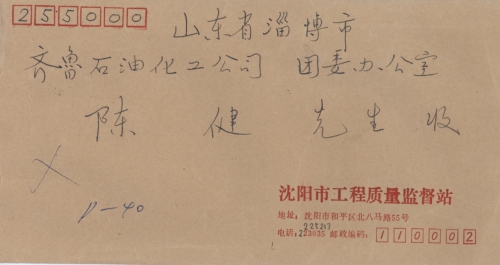 255000
山东省淄博市
齐鲁石油化工公司 团委办公室
陈健先生收
沈阳市工程质量监督站
地址：沈阳市和平区北八马路55号
电话：223035 邮政编码：110002